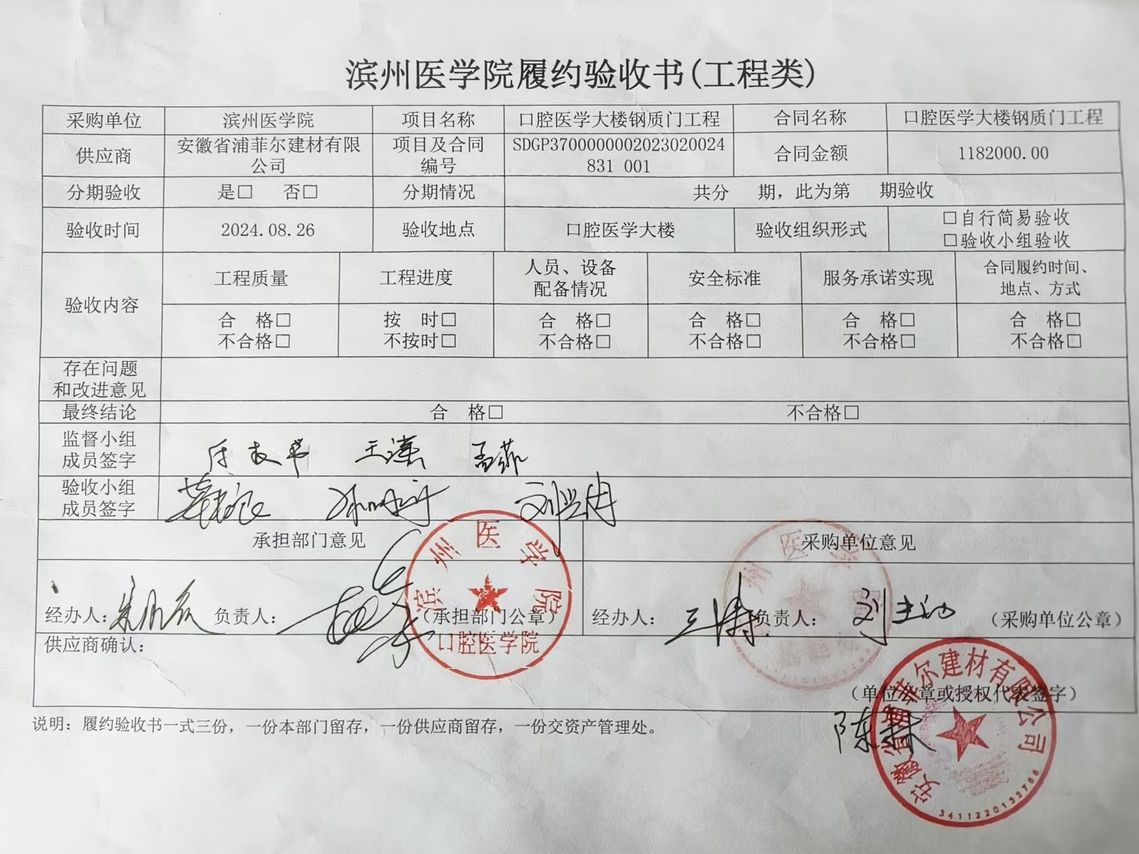 滨州医学院履约验收书(工程类)
采购单位 滨州医学院 项目名称 口腔医学大楼钢质门工程 合同名称 口腔医学大楼钢质门工程
供应商 安徽省浦菲尔建材有限公司 项目及合同编号 SDGP3700000002023020024831 001 合同金额 1182000.00
分期验收 是□ 否□ 分期情况 共分 期，此为第 期验收
验收时间 2024.08.26 验收地点 口腔医学大楼 验收组织形式 □自行简易验收
□验收小组验收
验收内容 工程质量 工程进度 人员、设备配备情况 安全标准 服务承诺实现 合同履约时间、地点、方式
合 格□ 按 时□ 合 格□ 合 格□ 合 格□ 合 格□
不合格□ 不按时□ 不合格□ 不合格□ 不合格□ 不合格□
存在问题
和改进意见
最终结论 合 格□ 不合格□
监督小组
成员签字 孟菲
验收小组
成员签字
承担部门意见 采购单位意见
经办人： 负责人： （承担部门公章） 经办人： 负责人： （采购单位公章）
滨州医学院
口腔医学院
供应商确认：
（单位公章或授权代表签字）
陈林
安徽省浦菲尔建材有限公司
说明：履约验收书一式三份，一份本部门留存，一份供应商留存，一份交资产管理处。